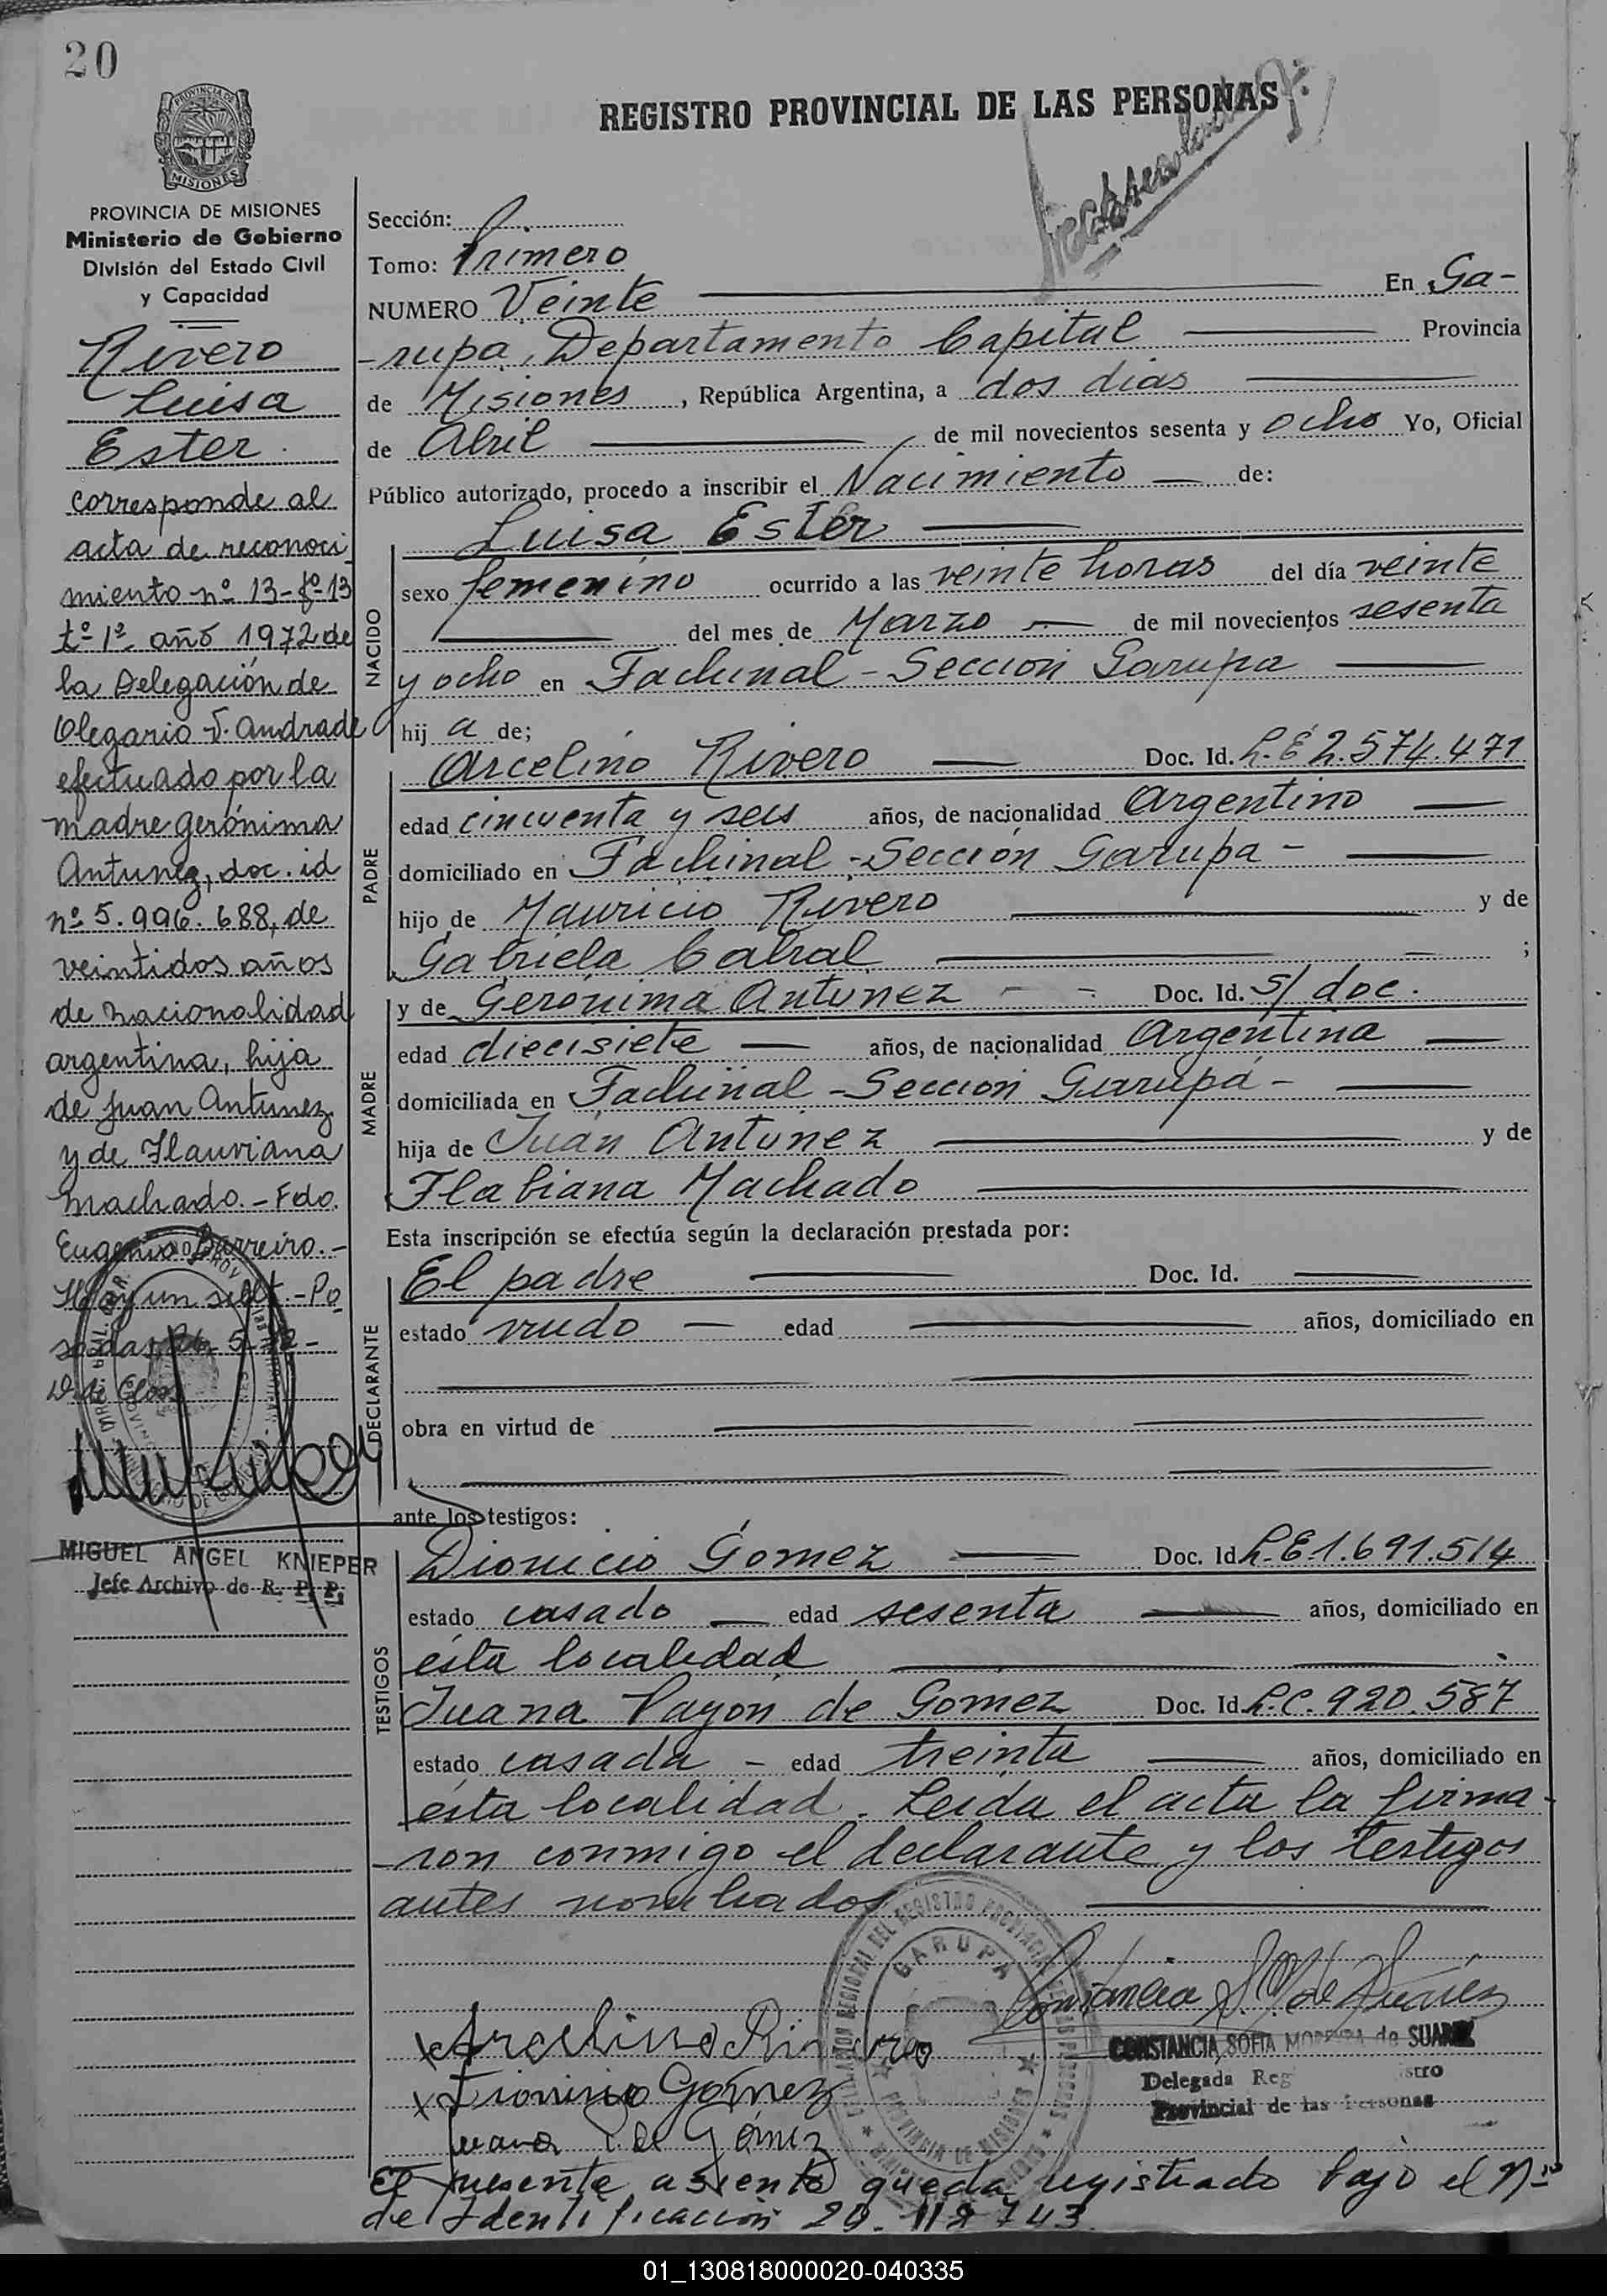 20
REGISTRO PROVINCIAL DE LAS PERSONAS
PROVINCIA DE
MISIONES
PROVINCIA DE MISIONES
Ministerio de Gobierno
División del Estado Civil
y Capacidad
Rivero
Luisa
Ester
corresponde al
acta de reconoci
miento nº 13-fº 13
tº 1º año 1972 de
la Delegación de
Olegario V. Andrade
efectuado por la
madre Gerónima
Antunez, doc. id
nº 5.996.688, de
veintidos años
de nacionalidad
argentina, hija
de Juan Antunez
y de Flauviana
Machado.- Fdo.
Eugenio Barreiro.-
Hay un sello.-Po
sadas,
MIGUEL ANGEL KNIEPER
Jefe Archivo de R. P. P.
Sección:
Tomo: Primero
NUMERO Veinte En Ga-
-rupa, Departamento Capital Provincia
de Misiones, República Argentina, a dos dias
de Abril de mil novecientos sesenta y ocho Yo, Oficial
Público autorizado, procedo a inscribir el Nacimiento de:
Luisa Ester
NACIDO
sexo femenino ocurrido a las veinte horas del día veinte
del mes de Marzo de mil novecientos sesenta
y ocho en Fachinal - Sección Garupa
hij a de;
PADRE
Arcelino Rivero Doc. Id. L.E 2.574.471
edad cincuenta y seis años, de nacionalidad Argentino
domiciliado en Fachinal - Sección Garupa -
hijo de Mauricio Rivero y de
Gabriela Cabral ;
MADRE
y de Gerónima Antunez Doc. Id. s/ doc.
edad diecisiete años, de nacionalidad Argentina
domiciliada en Fachinal - Sección Garupá -
hija de Juan Antunez y de
Flabiana Machado
Esta inscripción se efectúa según la declaración prestada por:
DECLARANTE
El padre Doc. Id.
estado viudo edad años, domiciliado en
obra en virtud de
ante los testigos:
TESTIGOS
Dionicio Gomez Doc. Id L.E 1.691.514
estado casado edad sesenta años, domiciliado en
ésta localidad
Juana Payón de Gomez Doc. Id L.C. 920.587
estado casada - edad treinta años, domiciliado en
ésta localidad. Leida el acta la firma-
-ron conmigo el declarante y los testigos
antes nombrados
GARUPA
PROVINCIA DE MISIONES
Constancia S. M. de Suárez
CONSTANCIA SOFIA MOREYRA de SUAREZ
Delegada Reg stro
Provincial de las Personas
x Arcelino Rivero
x Dionicio Gómez
Juana P. de Gómez
El presente asiento queda registrado bajo el Nº
de Identificación 20.112743
01_130818000020-040335